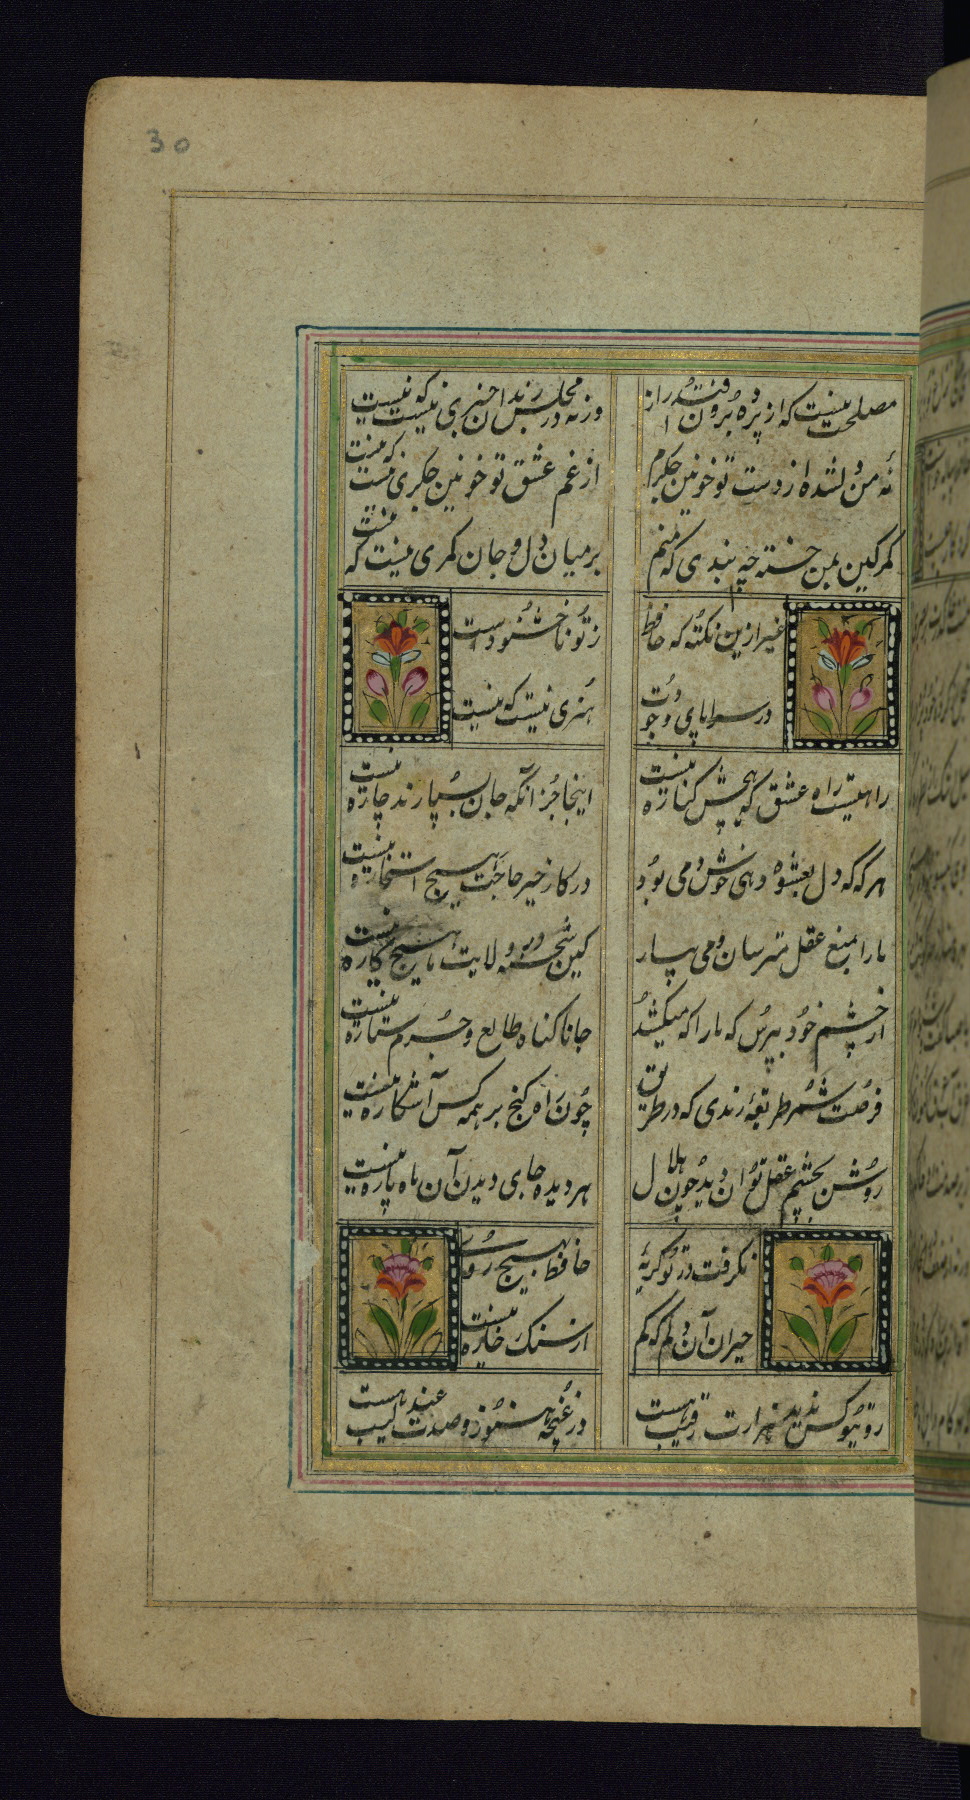 30
مصلحت نیست که از پرده برون افتد راز
ورنه در مجلس رندان خبری نیست که نیست
نه من دلشده از دست تو خونین جکرم
از غم عشق تو خونین جکری نیست که نیست
کمر کین بمن خسته چه بندی که منم
بر میان دل و جان کمری نیست که نیست
غیر ازین نکته که حافظ ز تو ناخشنودست
در سراپای وجودت هنری نیست که نیست
راهیست راه عشق که هیچش کناره نیست
اینجا جز آنکه جان بسپارند چاره نیست
هر که که دل بعشق دهی خوش دمی بود
در کار خیر حاجت هیچ استخاره نیست
ما را بمنع عقل مترسان و می بیار
کین شحنه در ولایت ما هیچ کاره نیست
از چشم خود بپرس که ما را که میکشد
جانا کناه طالع و جرم ستاره نیست
فرصت شمر طریقهٔ رندی که در طریق
چون راه کنج بر همه کس آشکاره نیست
روشن بچشم عقل توان دید چون هلال
هر دیده جای دیدن آن ماه پاره نیست
نکرفت در تو کریهٔ حافظ بهیچ روی
حیران آن دلم که کم از سنک خاره نیست
رویتو کس ندید هزارت رقیب هست
در غنچهٔ هنوز و صدت عندلیب هست